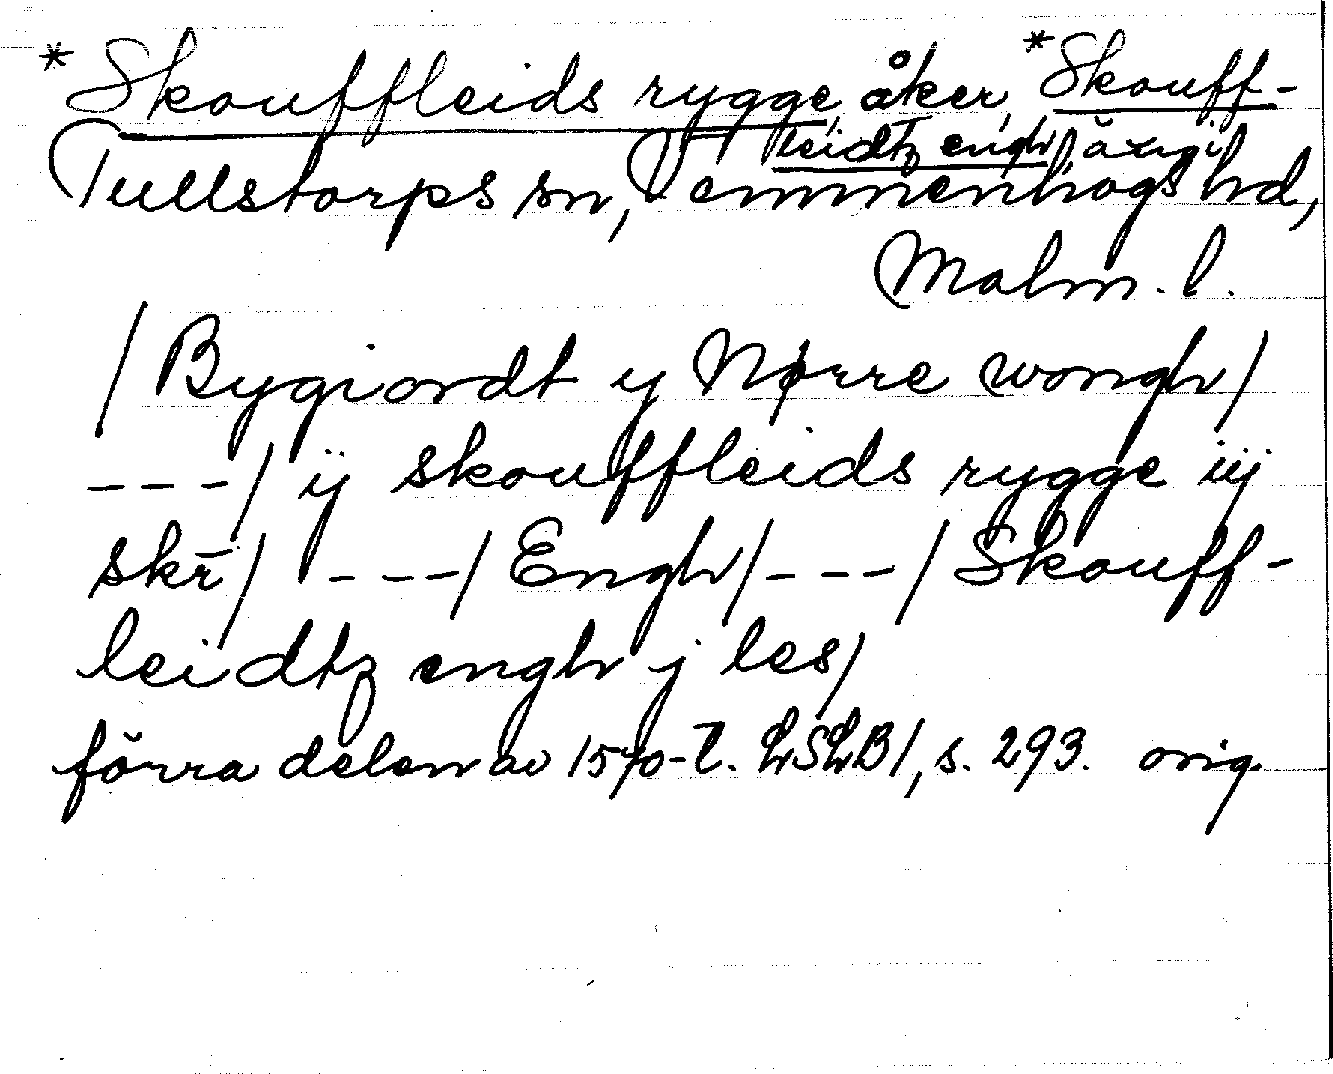 *Skouffleids rygge, åker, *Skouff-
leidtz engh, äng i
Tullstorps sn, Vemmenhögs hd,
Malm. l.
/Bygiordt y Nørre wongh/
---/ ij skouffleids rygge iij
skr̄/ ---/ Engh/---/ Skouff-
leidtz engh j les/
förra delen av 1570-t. LSLB1, s. 293. orig.